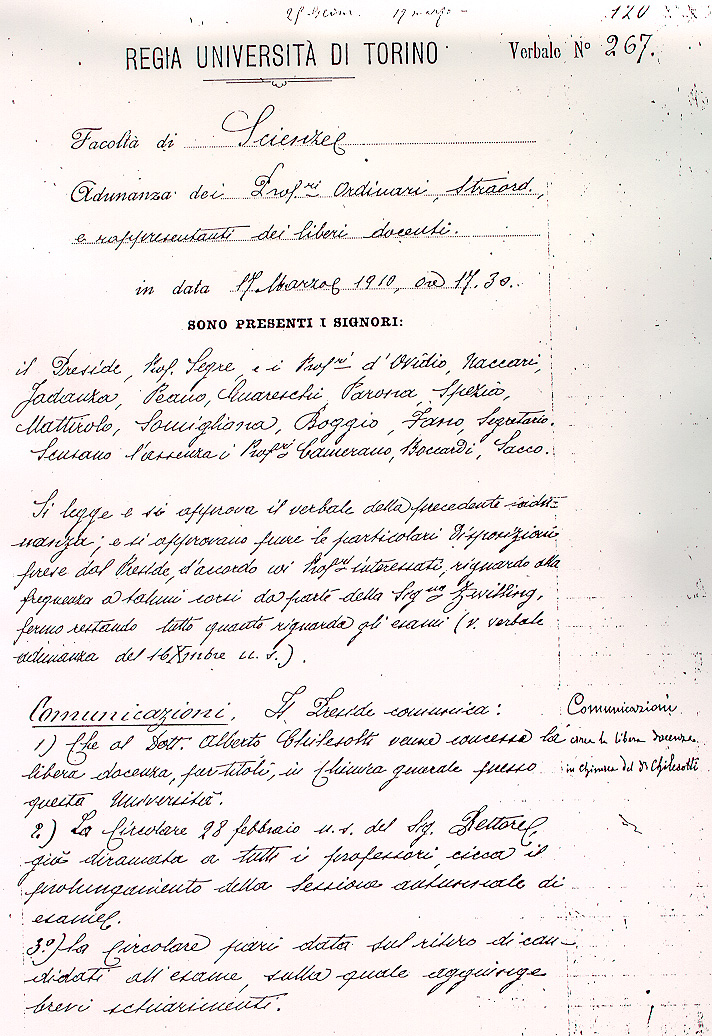 17 marzo - 120
REGIA UNIVERSITÀ DI TORINO
Verbale Nº 267.
Facoltà di Scienze
Adunanza dei Prof.ri Ordinari, Straord.,
e rappresentanti dei liberi docenti.
in data 17 Marzo 1910, ore 17.30.
SONO PRESENTI I SIGNORI:
il Preside, Prof. Segre, e i Prof.ri d'Ovidio, Naccari,
Jadanza, Peano, Guareschi, Parona, Spezia,
Mattirolo, Somigliana, Boggio, Fano, Segretario.
Scusano l'assenza i Prof.ri Camerano, Boccardi, Sacco.
Si legge e si approva il verbale della precedente
adunanza; e si approvano pure le particolari disposizioni
prese dal Preside, d'accordo coi Prof.ri interessati, riguardo alla
frequenza a taluni corsi da parte della Sig.na Zwilling,
fermo restando tutto quanto riguarda gli esami (v. verbale
adunanza del 16 Xmbre u.s.).
Comunicazioni. Il Preside comunica:
1) Che al Dott. Alberto Chilesotti venne concessa la
libera docenza, per titoli, in Chimica generale presso
questa Università.
2.) La Circolare 28 febbraio u.s. del Sig. Rettore,
già diramata a tutti i professori, circa il
prolungamento della Sessione autunnale di
esame.
3º) la Circolare pari data sul ritiro di can-
didati all'esame, sulla quale aggiunge
brevi schiarimenti.
Comunicazioni
circa la libera docenza
in chimica del Dr Chilesotti